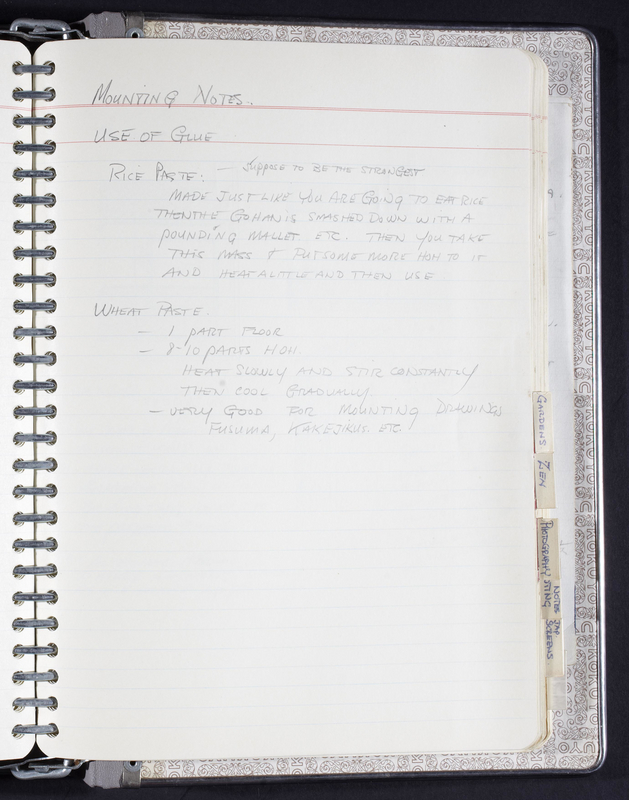 MOUNTING NOTES..
USE OF GLUE
RICE PASTE: — SUPPOSE TO BE THE STRONGEST
MADE JUST LIKE YOU ARE GOING TO EAT RICE
THEN THE GOHAN IS SMASHED DOWN WITH A
POUNDING MALLET ETC. THEN YOU TAKE
THIS MASS & PUT SOME MORE HOH TO IT
AND HEAT A LITTLE AND THEN USE
WHEAT PASTE.
— 1 PART FLOOR
— 8-10 PARTS HOH.
HEAT SLOWLY AND STIR CONSTANTLY
THEN COOL GRADUALLY.
— VERY GOOD FOR MOUNTING DRAWINGS
FUSUMA, KAKEJIKUS. ETC.
GARDENS
ZEN
PHOTOGRAPHY
NOTES JAP.
SCREENS
KOKUYO